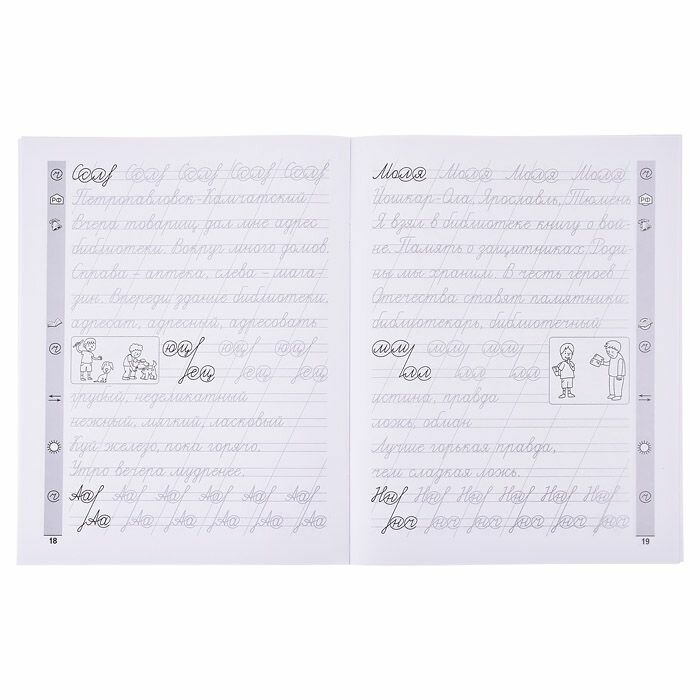 Петропавловск-Камчатский
Вчера товарищ дал мне адрес
библиотеки. Вокруг много домов.
Справа – аптека, слева – мага-
зин. Впереди здание библиотеки.
адресат, адресный, адресовать
юц юц юц юц
ец ец ец ец
грубый, неделикатный
нежный, мягкий, ласковый
Куй железо, пока горячо.
Утро вечера мудренее.
18
Моля Моля Моля Моля
Йошкар-Ола, Ярославль, Тюмень
Я взял в библиотеке книгу о вой-
не. Память о защитниках Роди-
ны мы храним. В честь героев
Отечества ставят памятники.
библиотекарь, библиотечный
мм мм мм мм
лл лл лл лл
истина, правда
ложь, обман
Лучше горькая правда,
чем сладкая ложь.
19
РФ
РФ